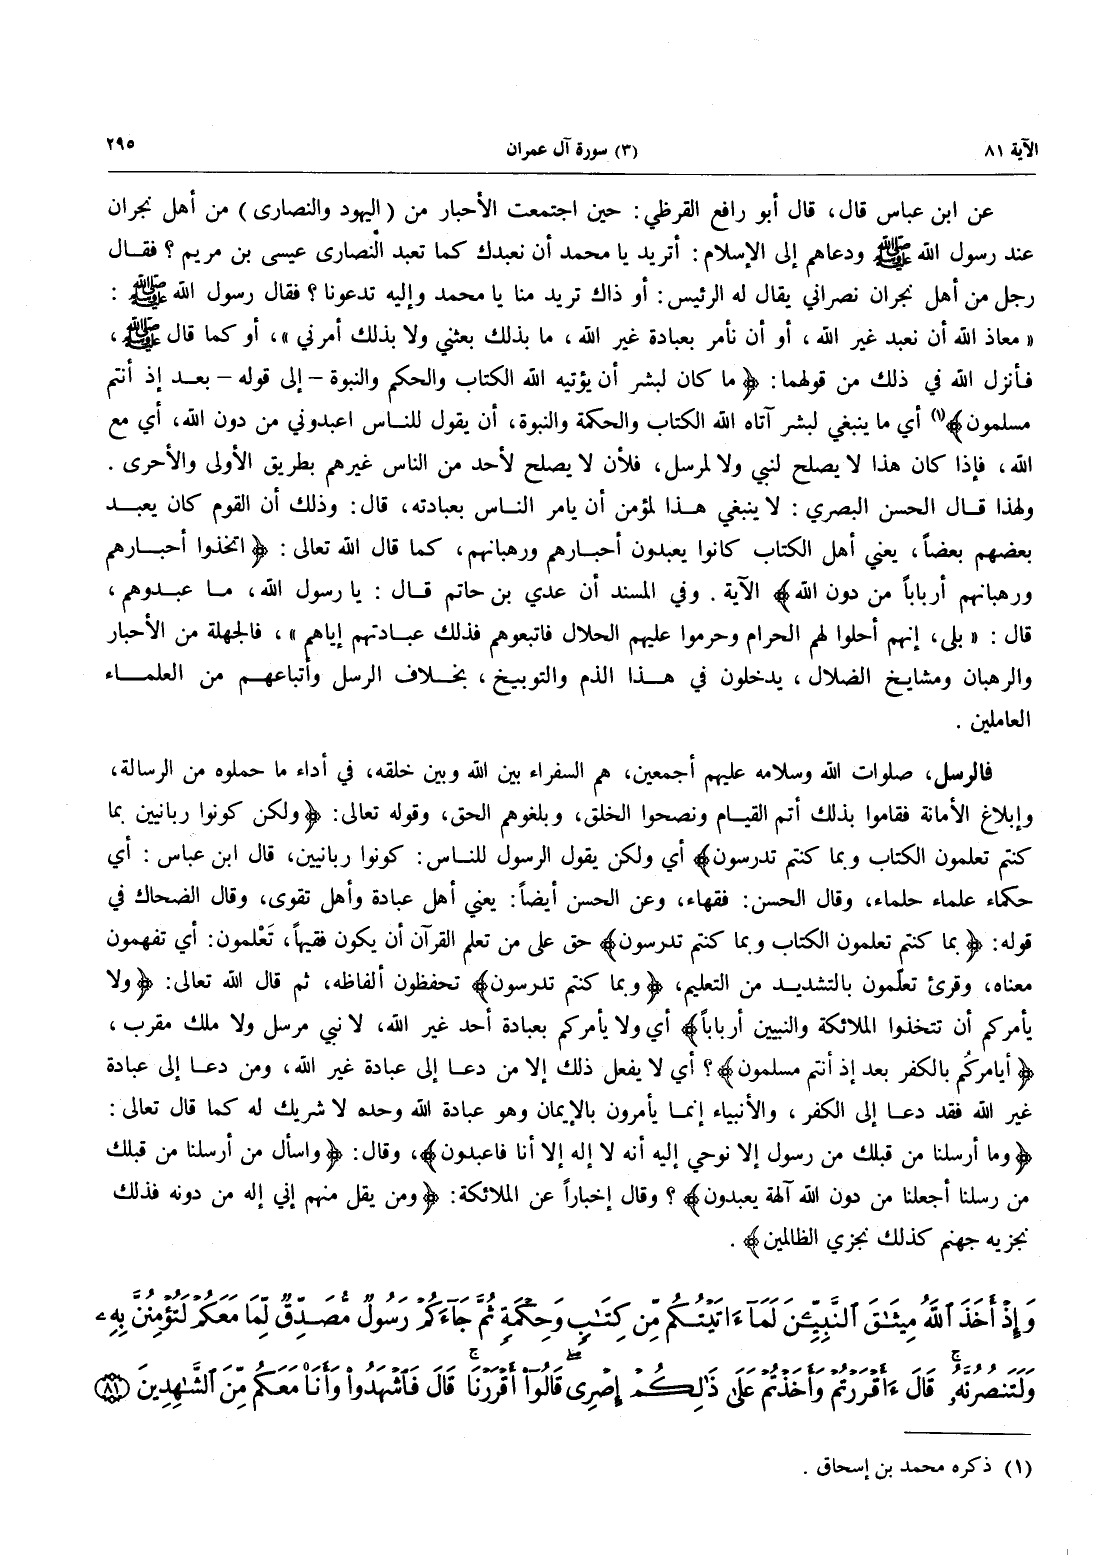 الآية ٨١ (٣) سورة آل عمران ٢٩٥
عن ابن عباس قال، قال أبو رافع القرظي: حين اجتمعت الأحبار من (اليهود والنصارى) من أهل نجران
عند رسول الله ﷺ ودعاهم إلى الإسلام: أتريد يا محمد أن نعبدك كما تعبد النصارى عيسى بن مريم؟ فقال
رجل من أهل نجران نصراني يقال له الرئيس: أو ذاك تريد منا يا محمد وإليه تدعونا؟ فقال رسول الله ﷺ:
«معاذ الله أن نعبد غير الله، أو أن نأمر بعبادة غير الله، ما بذلك بعثني ولا بذلك أمرني»، أو كما قال ﷺ،
فأنزل الله في ذلك من قولهما: ﴿ما كان لبشر أن يؤتيه الله الكتاب والحكم والنبوة – إلى قوله – بعد إذ أنتم
مسلمون﴾(١) أي ما ينبغي لبشر آتاه الله الكتاب والحكمة والنبوة، أن يقول للناس اعبدوني من دون الله، أي مع
الله، فإذا كان هذا لا يصلح لنبي ولا لمرسل، فلأن لا يصلح لأحد من الناس غيرهم بطريق الأولى والأحرى.
ولهذا قال الحسن البصري: لا ينبغي هذا لمؤمن أن يامر الناس بعبادته، قال: وذلك أن القوم كان يعبد
بعضهم بعضاً، يعني أهل الكتاب كانوا يعبدون أحبارهم ورهبانهم، كما قال الله تعالى: ﴿اتخذوا أحبارهم
ورهبانهم أرباباً من دون الله﴾ الآية. وفي المسند أن عدي بن حاتم قال: يا رسول الله، ما عبدوهم،
قال: «بلى، إنهم أحلوا لهم الحرام وحرموا عليهم الحلال فاتبعوهم فذلك عبادتهم إياهم»، فالجهلة من الأحبار
والرهبان ومشايخ الضلال، يدخلون في هذا الذم والتوبيخ، بخلاف الرسل وأتباعهم من العلماء
العاملين.
فالرسل، صلوات الله وسلامه عليهم أجمعين، هم السفراء بين الله وبين خلقه، في أداء ما حملوه من الرسالة،
وإبلاغ الأمانة فقاموا بذلك أتم القيام ونصحوا الخلق، وبلغوهم الحق، وقوله تعالى: ﴿ولكن كونوا ربانيين بما
كنتم تعلمون الكتاب وبما كنتم تدرسون﴾ أي ولكن يقول الرسول للناس: كونوا ربانيين، قال ابن عباس: أي
حكماء علماء حلماء، وقال الحسن: فقهاء، وعن الحسن أيضاً: يعني أهل عبادة وأهل تقوى، وقال الضحاك في
قوله: ﴿بما كنتم تعلمون الكتاب وبما كنتم تدرسون﴾ حق على من تعلم القرآن أن يكون فقيهاً، تَعْلمون: أي تفهمون
معناه، وقرئ تعلّمون بالتشديد من التعليم، ﴿وبما كنتم تدرسون﴾ تحفظون ألفاظه، ثم قال الله تعالى: ﴿ولا
يأمركم أن تتخذوا الملائكة والنبيين أرباباً﴾ أي ولا يأمركم بعبادة أحد غير الله، لا نبي مرسل ولا ملك مقرب،
﴿أيامركُم بالكفر بعد إذ أنتم مسلمون﴾؟ أي لا يفعل ذلك إلا من دعا إلى عبادة غير الله، ومن دعا إلى عبادة
غير الله فقد دعا إلى الكفر، والأنبياء إنما يأمرون بالإيمان وهو عبادة الله وحده لا شريك له كما قال تعالى:
﴿وما أرسلنا من قبلك من رسول إلا نوحي إليه أنه لا إله إلا أنا فاعبدون﴾، وقال: ﴿واسأل من أرسلنا من قبلك
من رسلنا أجعلنا من دون الله آلهة يعبدون﴾؟ وقال إخباراً عن الملائكة: ﴿ومن يقل منهم إني إله من دونه فذلك
نجزيه جهنم كذلك نجزي الظالمين﴾.
وَإِذْ أَخَذَ ٱللَّهُ مِيثَـٰقَ ٱلنَّبِيِّـۧنَ لَمَآ ءَاتَيْتُكُم مِّن كِتَـٰبٍ وَحِكْمَةٍ ثُمَّ جَآءَكُمْ رَسُولٌ مُّصَدِّقٌ لِّمَا مَعَكُمْ لَتُؤْمِنُنَّ بِهِۦ
وَلَتَنصُرُنَّهُۥ ۚ قَالَ ءَأَقْرَرْتُمْ وَأَخَذْتُمْ عَلَىٰ ذَٰلِكُمْ إِصْرِى ۖ قَالُوٓا۟ أَقْرَرْنَا ۚ قَالَ فَٱشْهَدُوا۟ وَأَنَا۠ مَعَكُم مِّنَ ٱلشَّـٰهِدِينَ ٨١
(١) ذكره محمد بن إسحاق.